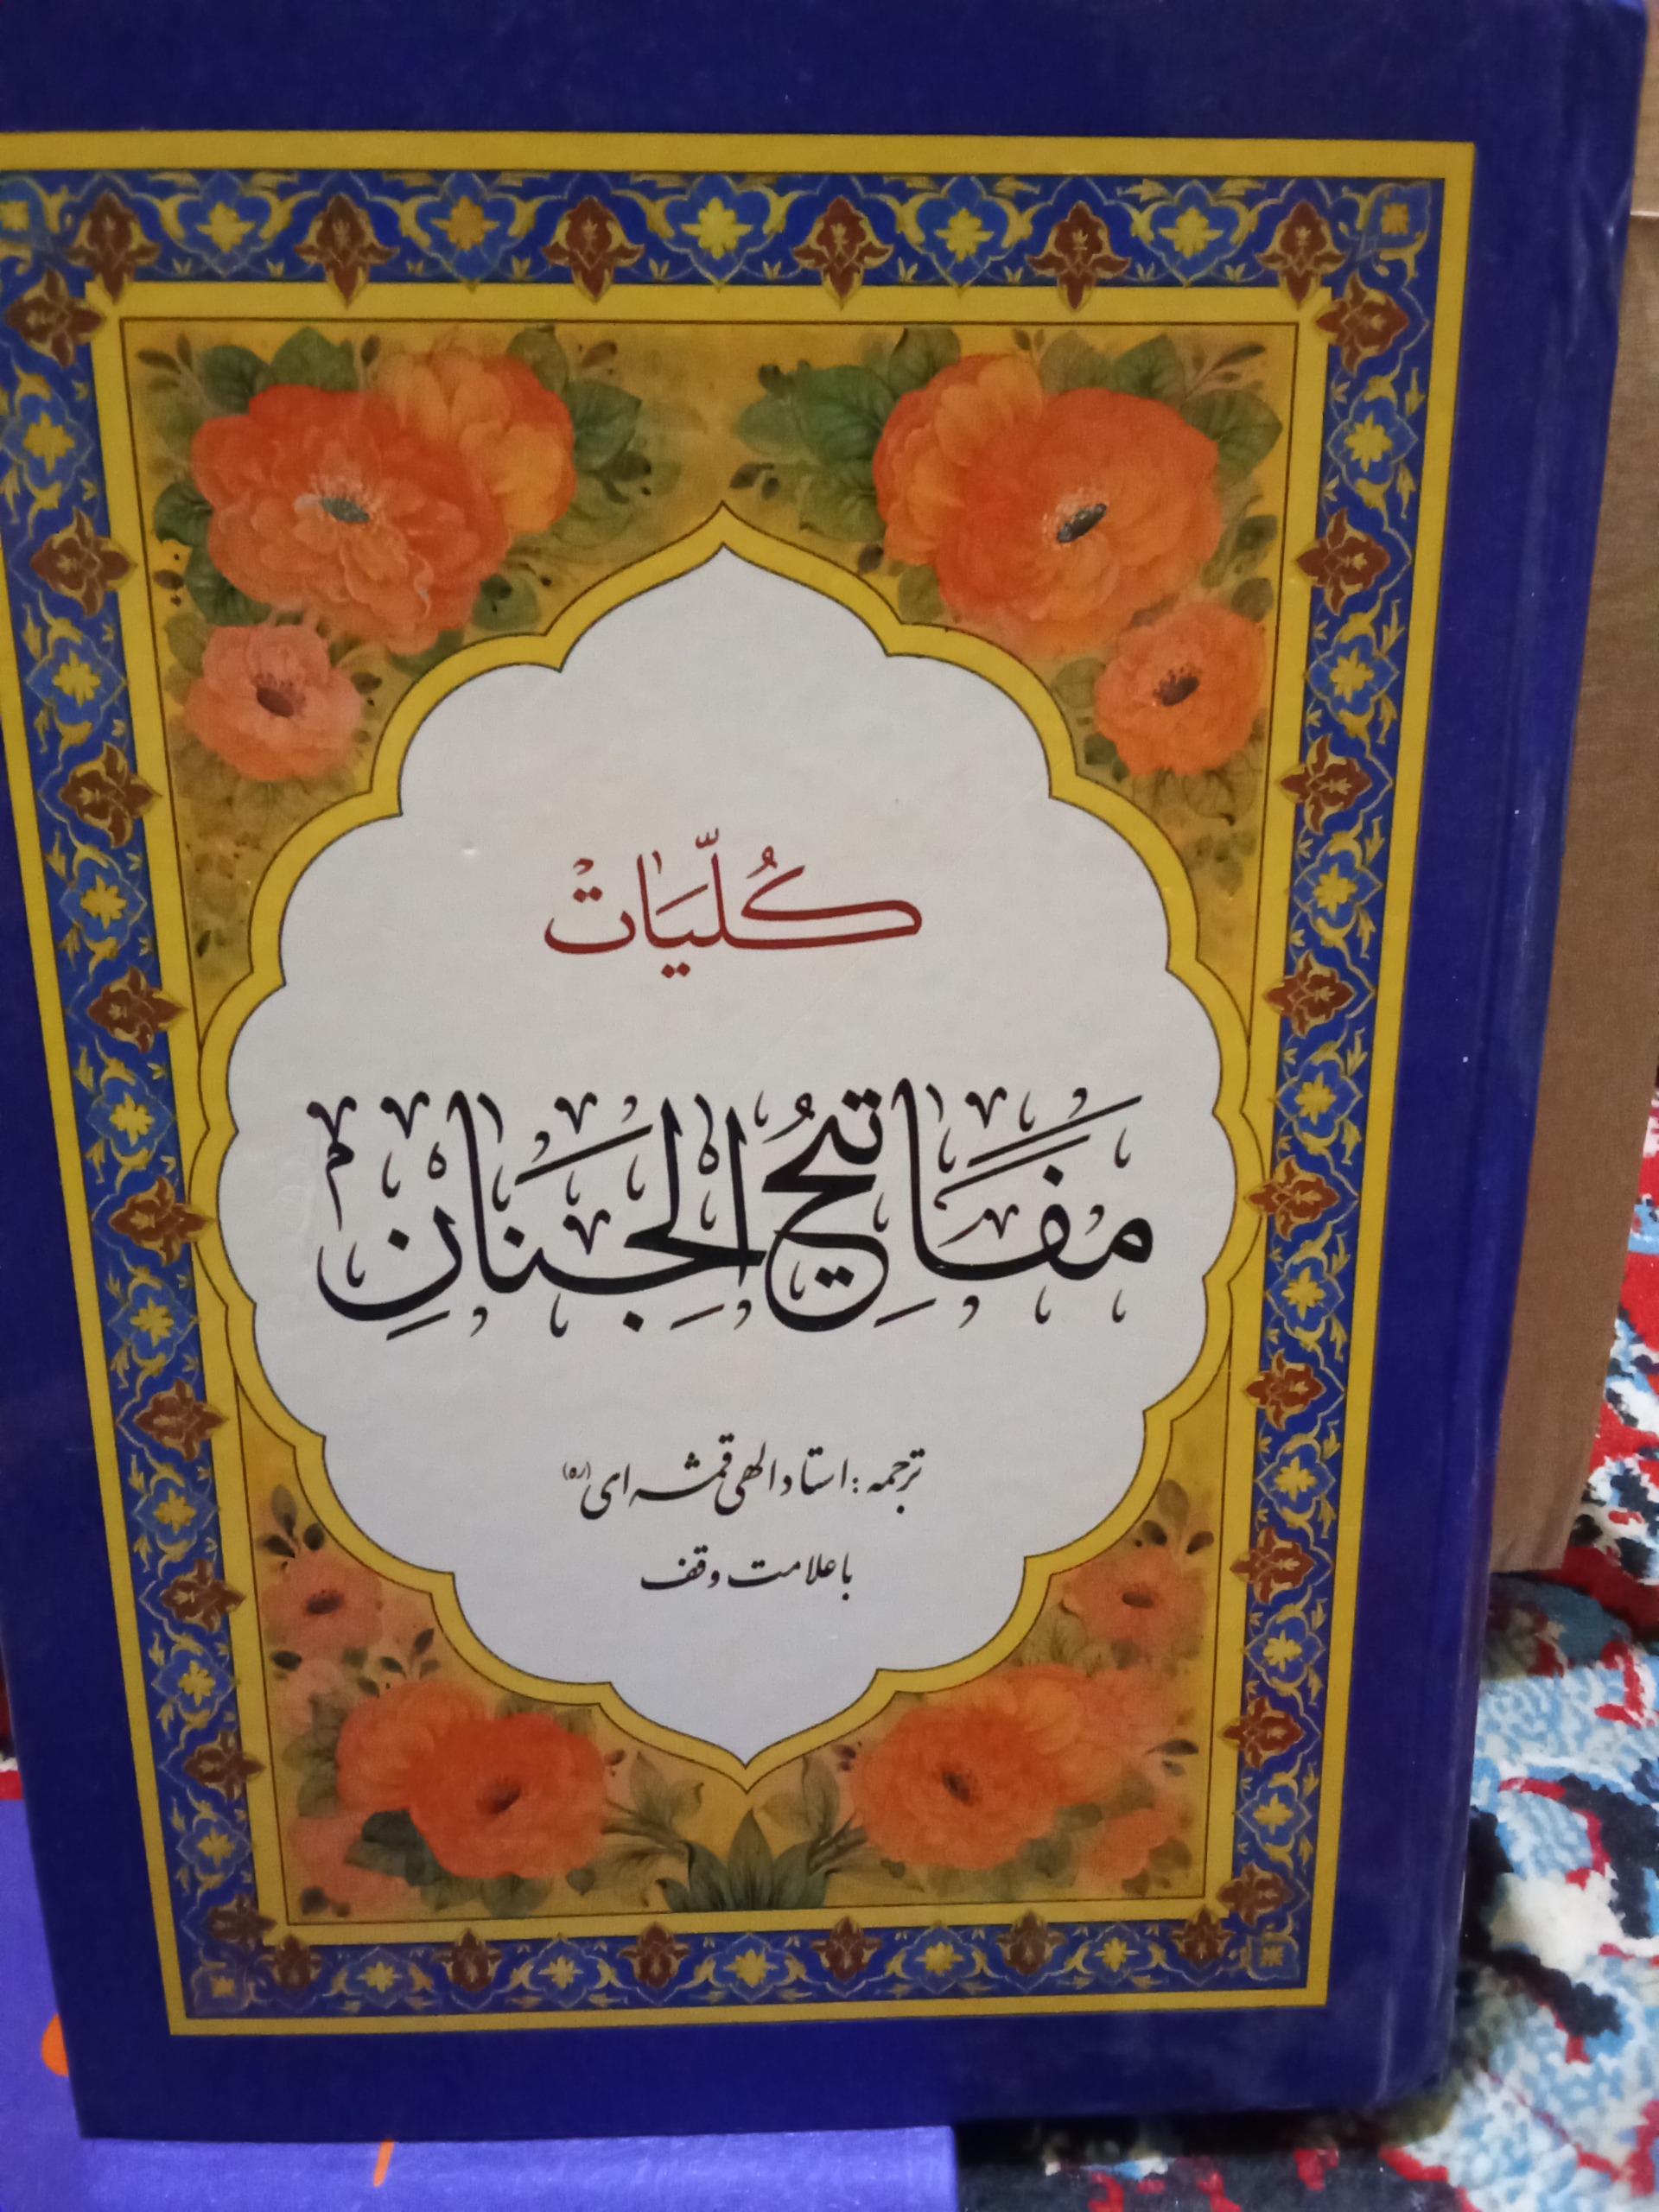 كُلّيَات
مَفَاتِيحُ الْجِنَانِ
ترجمه : استاد الهی قمشه ای (ره)
با علامت وقف